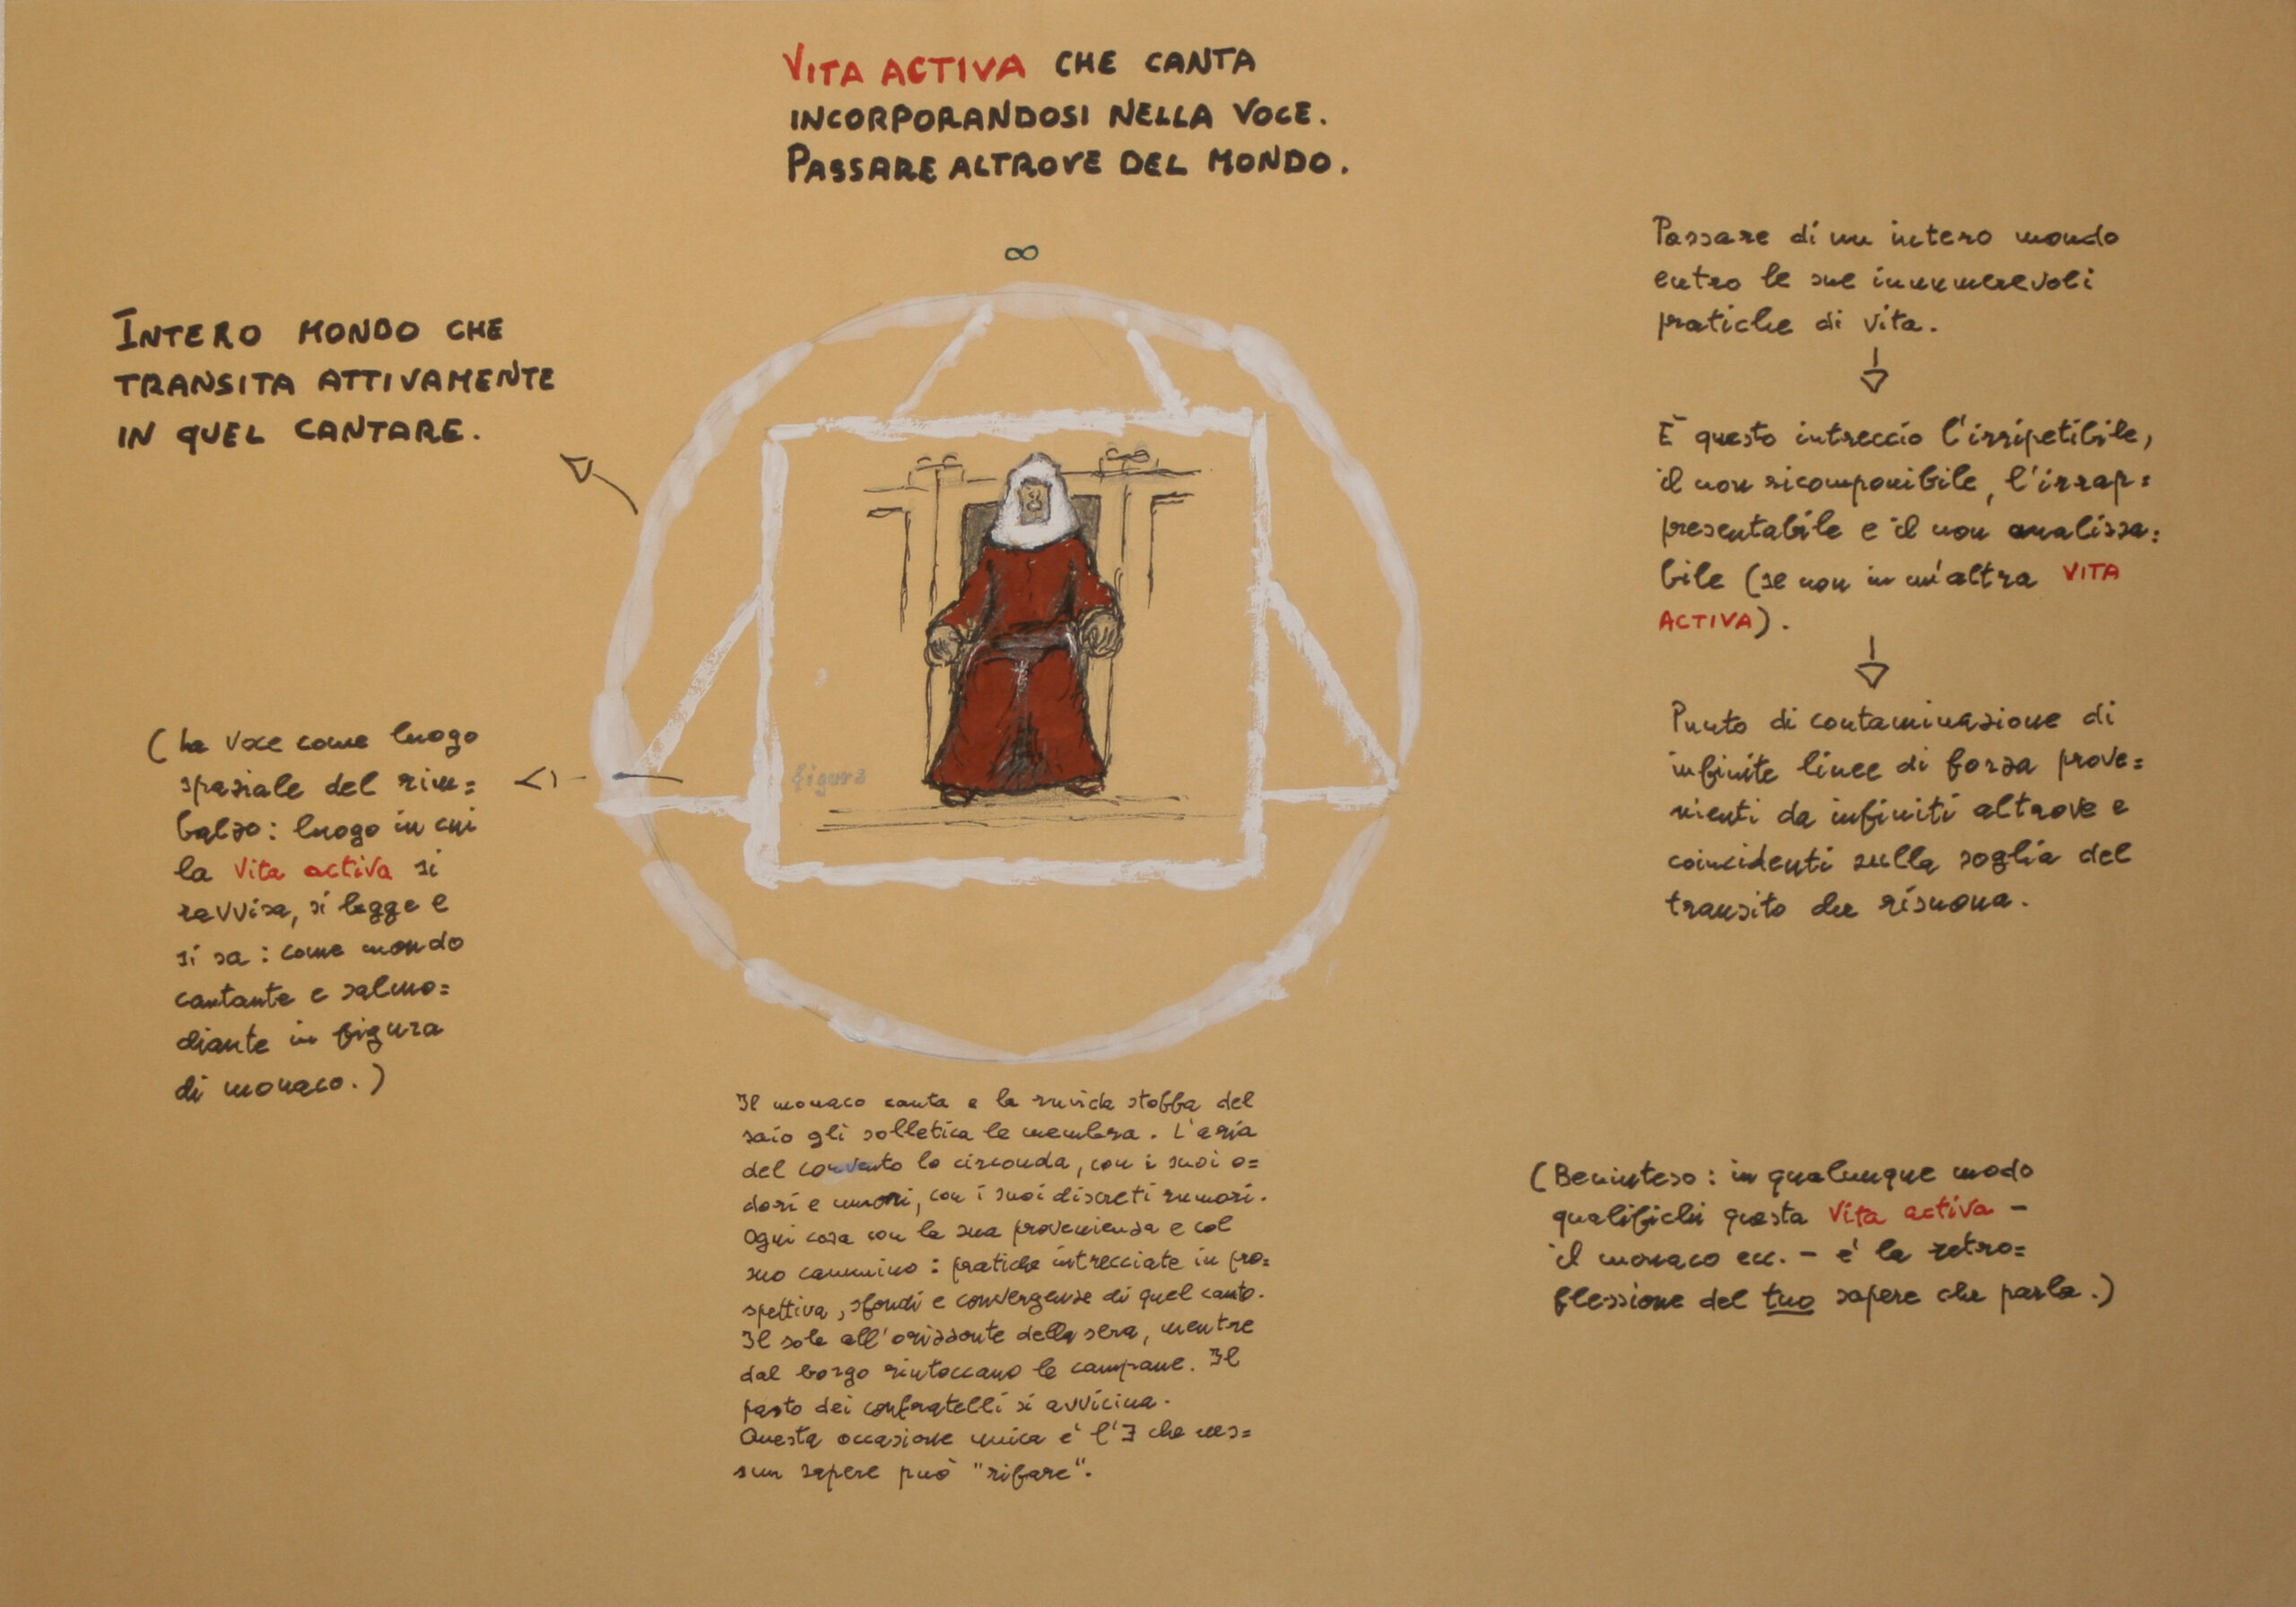 VITA ACTIVA CHE CANTA
INCORPORANDOSI NELLA VOCE.
PASSARE ALTROVE DEL MONDO.
∞
INTERO MONDO CHE
TRANSITA ATTIVAMENTE
IN QUEL CANTARE.
(La voce come luogo
spaziale del rim=
balzo: luogo in cui
la vita activa si
ravvisa, si legge e
si sa: come mondo
cantante e salmo=
diante in figura
di monaco.)
figura
Passare di un intero mondo
entro le sue innumerevoli
pratiche di vita.
È questo intreccio l'irripetibile,
il non ricomponibile, l'irrap=
presentabile e il non analizza=
bile (se non in un'altra VITA
ACTIVA).
Punto di contaminazione di
infinite linee di forza prove=
nienti da infiniti altrove e
coincidenti sulla soglia del
transito che risuona.
Il monaco canta e la ruvida stoffa del
saio gli solletica le membra. L'aria
del convento lo circonda, con i suoi o=
dori e umori, con i suoi discreti rumori.
Ogni cosa con la sua provenienza e col
suo cammino: pratiche intrecciate in pro=
spettiva, sfondi e convergenze di quel canto.
Il sole all'orizzonte della sera, mentre
dal borgo rintoccano le campane. Il
pasto dei confratelli si avvicina.
Questa occasione unica è l'∃ che nes=
sun sapere può "rifare".
(Beninteso: in qualunque modo
qualifichi questa vita activa -
il monaco ecc. - è la retro=
flessione del tuo sapere che parla.)